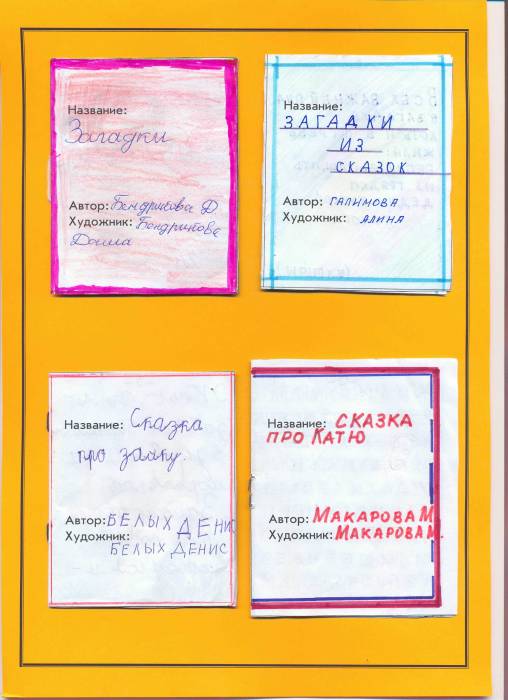 Название:
Загадки
Автор: Бендрикова Д
Художник: Бендрикова
Даша
Название:
ЗАГАДКИ
ИЗ
СКАЗОК
Автор: ГАЛИМОВА
Художник: АЛИНА
Название: Сказка
про зайку.
Автор: БЕЛЫХ ДЕНИС
Художник:
БЕЛЫХ ДЕНИС
Название: СКАЗКА
ПРО КАТЮ
Автор: МАКАРОВА М
Художник: МАКАРОВА М.